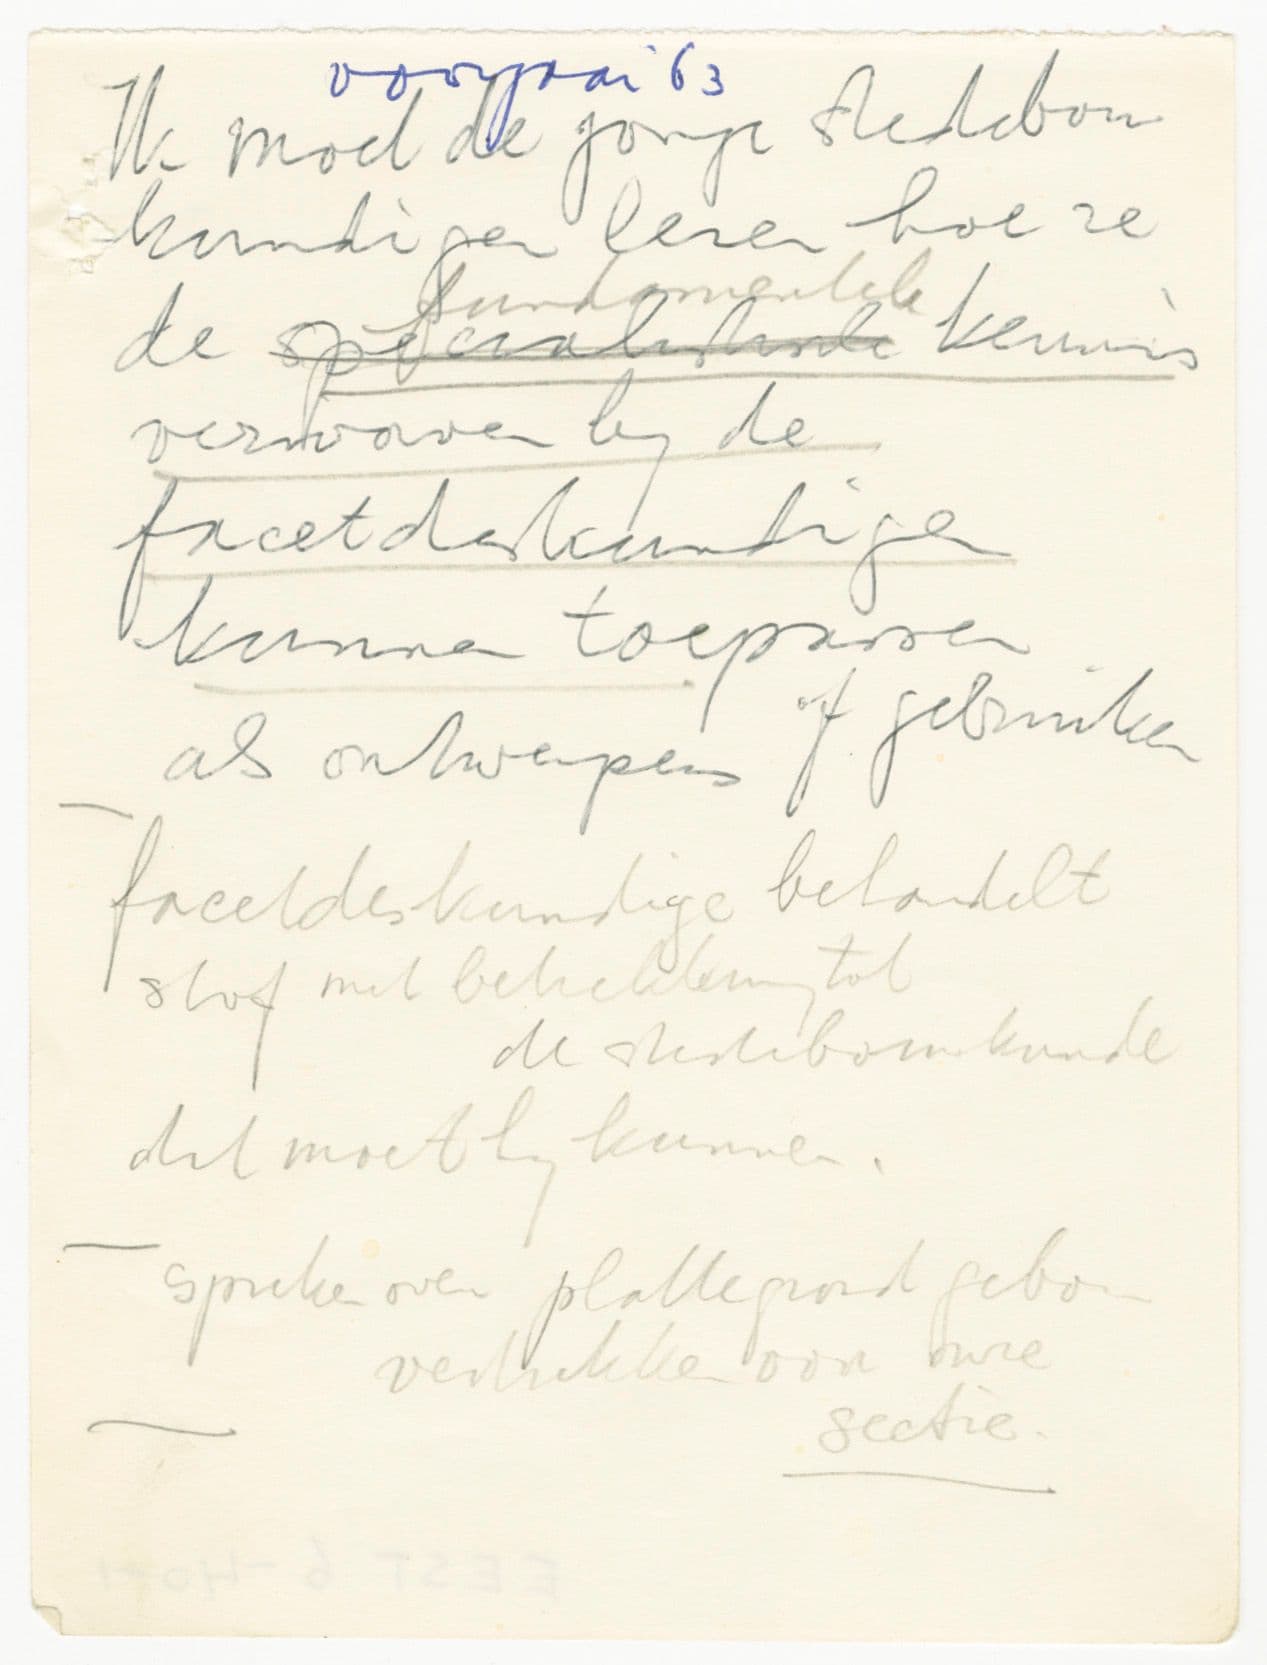 voorjaar 63
Ik moet de jonge stedebouw
kundigen leren hoe ze
fundamentele
de specialistische kennis
verworven bij de
facetdeskundigen
kunnen toepassen
of gebruiken
als ontwerpers
facetdeskundige behandelt
stof met betrekking tot
de stedebouwkunde
dat moet hij kunnen.
spreken over plattegrond gebouw
vertrekken voor onze
sectie.
EEST 6-40-1